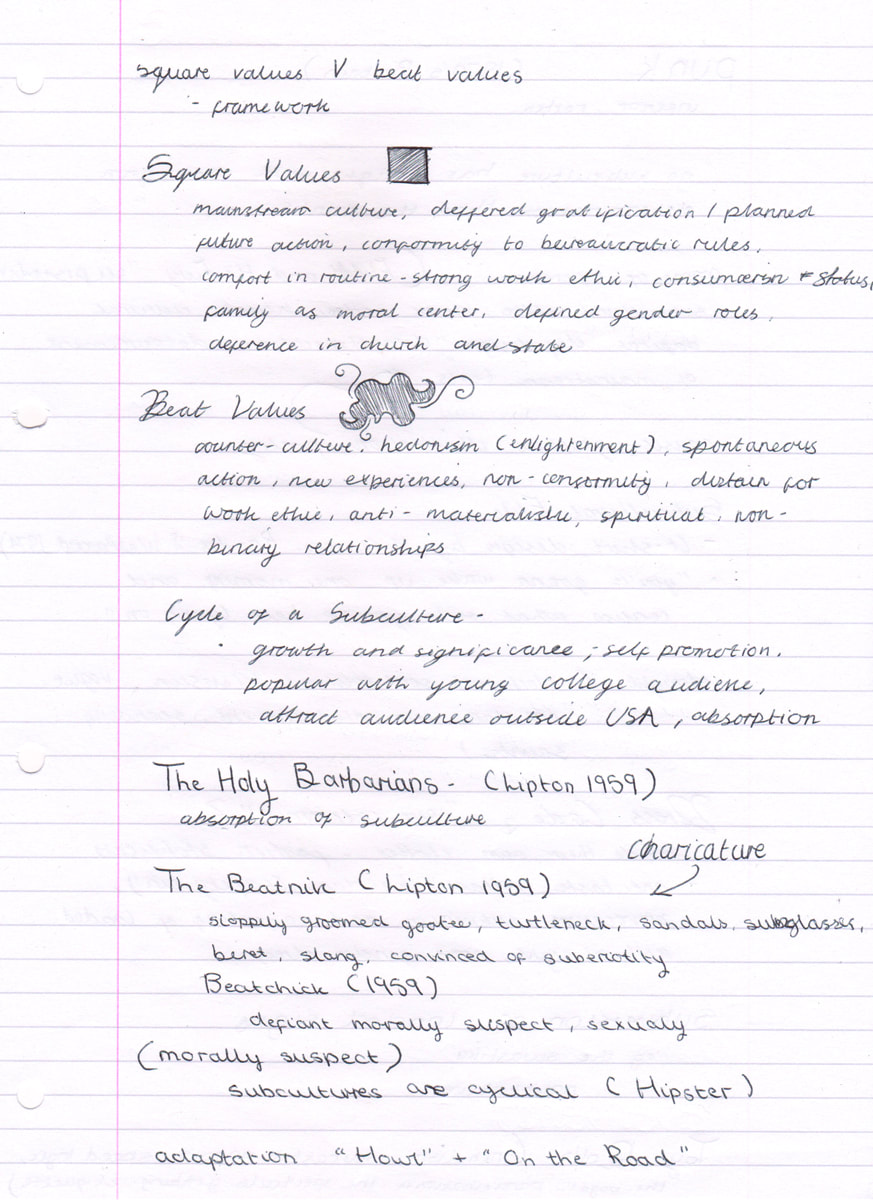 square values V beat values
- framework
Square Values
mainstream culture, deffered gratification / planned
future action, conformity to bereaucratic rules,
comfort in routine - strong work ethic, consumerism + status,
family as moral center, defined gender roles,
deference in church and state
Beat Values
counter-culture, hedonism (enlightenment), spontaneous
action, new experiences, non-conformity, distain for
work ethic, anti-materialistic, spiritual, non-
binary relationships
Cycle of a Subculture -
· growth and significance, - self promotion.
popular with young college audiene,
attract audience outside USA, absorption
The Holy Barbarians - (Lipton 1959)
absorption of subculture
charicature
The Beatnik (Lipton 1959)
sloppily groomed goatee, turtleneck, sandals, sunglasses,
beret, slang, convinced of suberiotity
Beatchick (1959)
defiant morally suspect, sexualy
(morally suspect)
subcultures are cyclical (Hipster)
adaptation "Howl" + "On the Road"